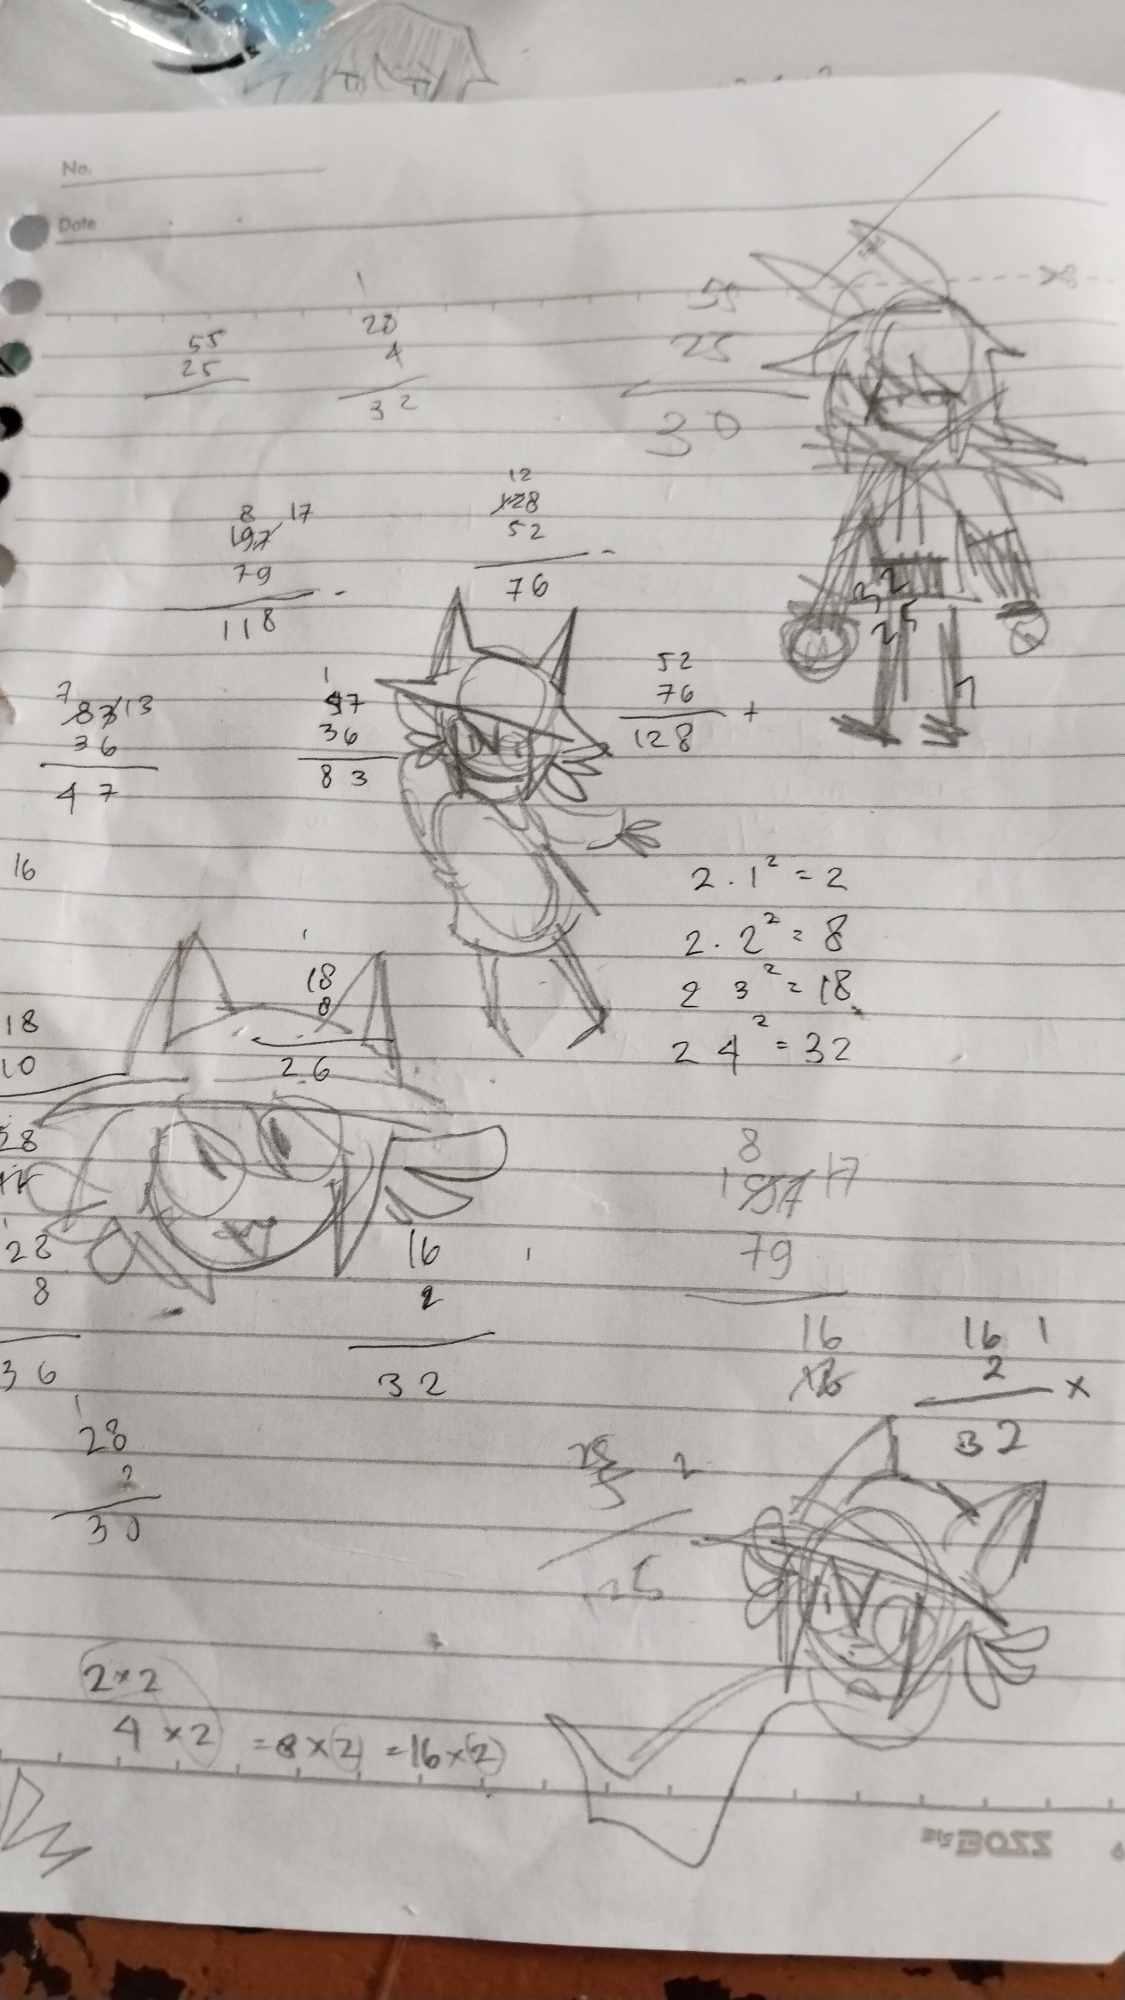 No.
Date
55
25
1
28
4
32
55
25
30
8 17
197
79
118
12
128
52
76
32
25
7
7
83 13
36
47
1
47
36
83
52
76
128 +
16
2 . 1² = 2
2 . 2² = 8
2 3² = 18
2 4² = 32
18
10
28
18
8
26
1
28
8
36
16
2
32
8
197 17
79
16
16 1
2 x
32
1
28
2
30
2
25
2 x 2
4 x 2 = 8 x (2) = 16 x (2)
BOSS